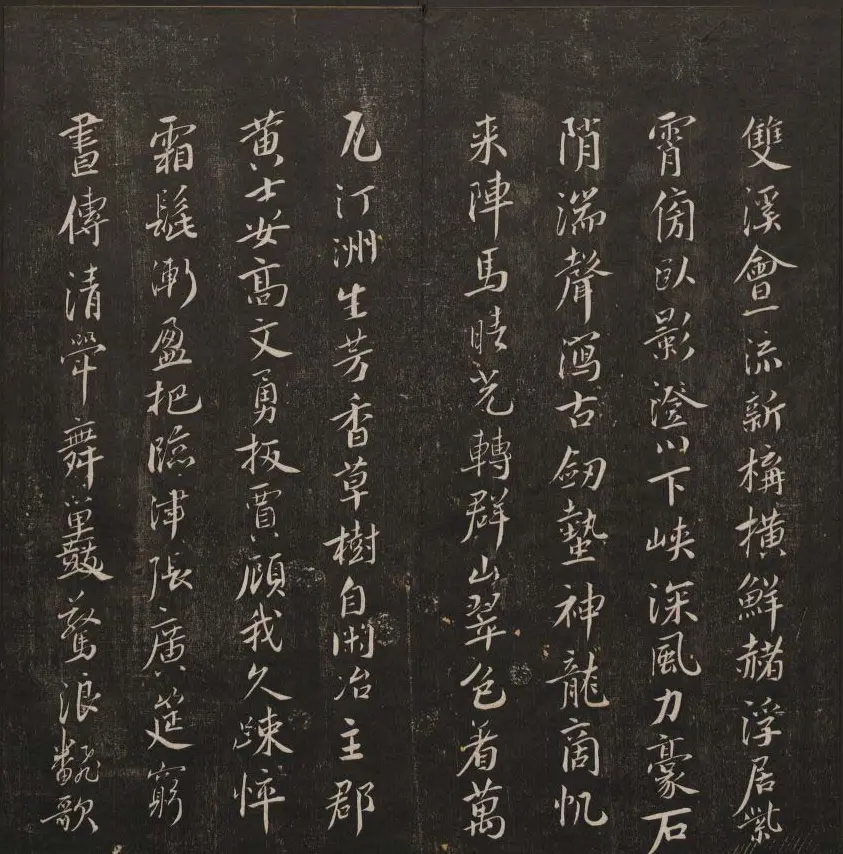 雙溪會一流新構橫鮮赭浮居紫
霄傍臥影澄川下峽深風力豪石
陗湍聲瀉古劒蟄神龍商帆
来陣馬晴光轉群山翠色着萬
瓦汀洲生芳香草樹自閑冶主郡
黃士安高文勇扳賈顧我久踈怦
霜髭漸盈把臨津張廣筵窮
晝傳清斝舞鼉鼓驚浪翻歌